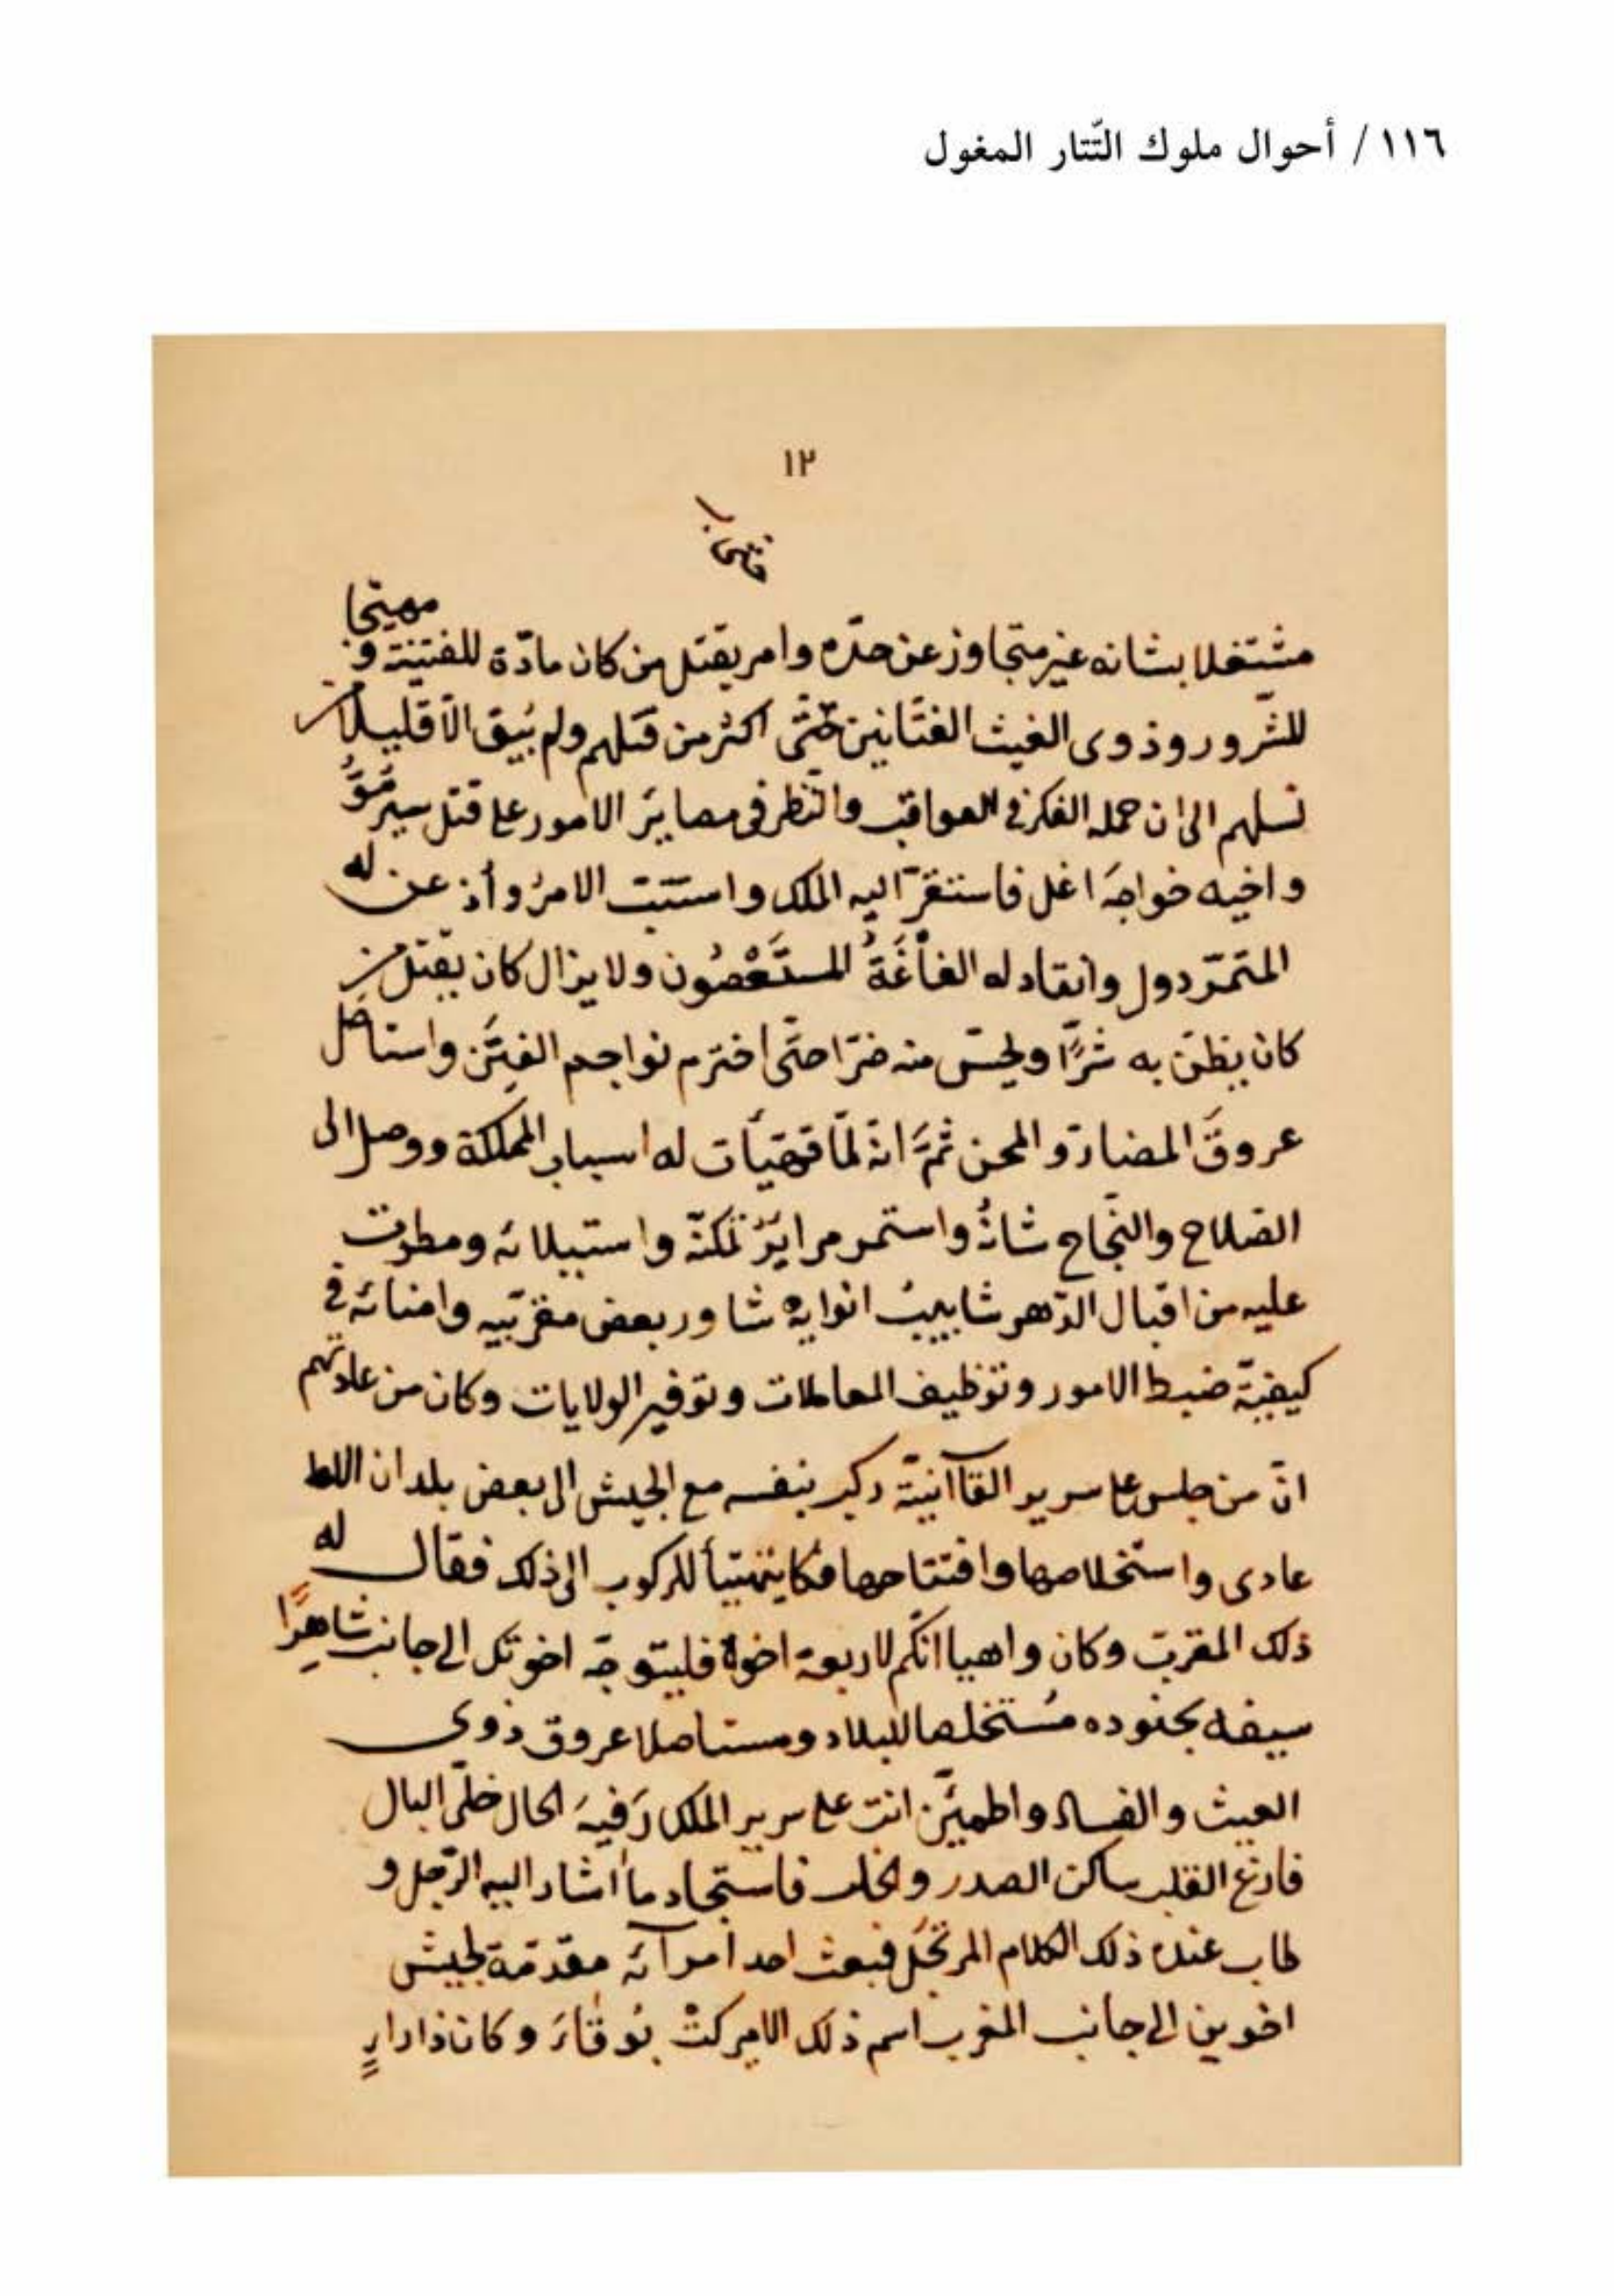 ١١٦ / أحوال ملوك التّتار المغول
١٢
مهيّجا
مشتغلا بشانه غير متجاوز عن حدّه وامر بقتل من كان مادّة للفتنة و
للشّرور وذوى العيث الفتّانين حتّى اكثر من قتلهم ولم يبق الّا قليلا من
نسلهم الى ان حمله الفكر فى العواقب والنّظر فى مصاير الامور على قتل سيرمَوُ
واخيه خواجه اغل فاستقرّ اليه الملك واستتبّ الامرُ وأذعن له
المتمرّدون وانقاد له الغاغَةُ المستَعْصُون ولا يزال كان يقتل من
كان يظنّ به شرًّا ويحسّ منه ضرّا حتّى اخترم نواجم الفِتَن واستاصل
عروقَ المضارّ والمحن ثمَّ انّه لمّا تهيّأت له اسباب المملكة ووصل الى
الصلاح والنّجاح شانُهُ واستمر مرايرُ تمكنّه واستيلائه ومطرت
عليه من اقبال الدّهر شابيبُ انوايه شاور بعض مقرّبيه وامنائه فى
كيفيّة ضبط الامور وتوظيف المعاملات وتوفير الولايات وكان من عادتهم
انّ من جلس على سرير القاآنيّة ركب بنفسه مع الجيش الى بعض بلدان
عادى واستخلاصها وافتتاحها فكان يتهيّأ للركوب الى ذلك فقال له
ذلك المقرّب وكان واهيا انكّم لاربعة اخوة فليتوجّه اخوتك الى جانب شاهِرًا
سيفه بجنوده مُستخلصا للبلاد ومستاصلا عروق ذوى
العيث والفساد واطمئنّ انت على سرير الملك رَفيهَ الحال خلّى البال
فارغ القلب ساكن الصدر والخلد فاستجاد ما أشار اليه الرّجل و
طاب عنده ذلك الكلام المرتجَل فبعث احد أمرآئه مقدّمة لجيش
اخوين الى جانب المغرب اسم ذلك الامير كتْ بُوقَاءَ وكان ذا دارٍ